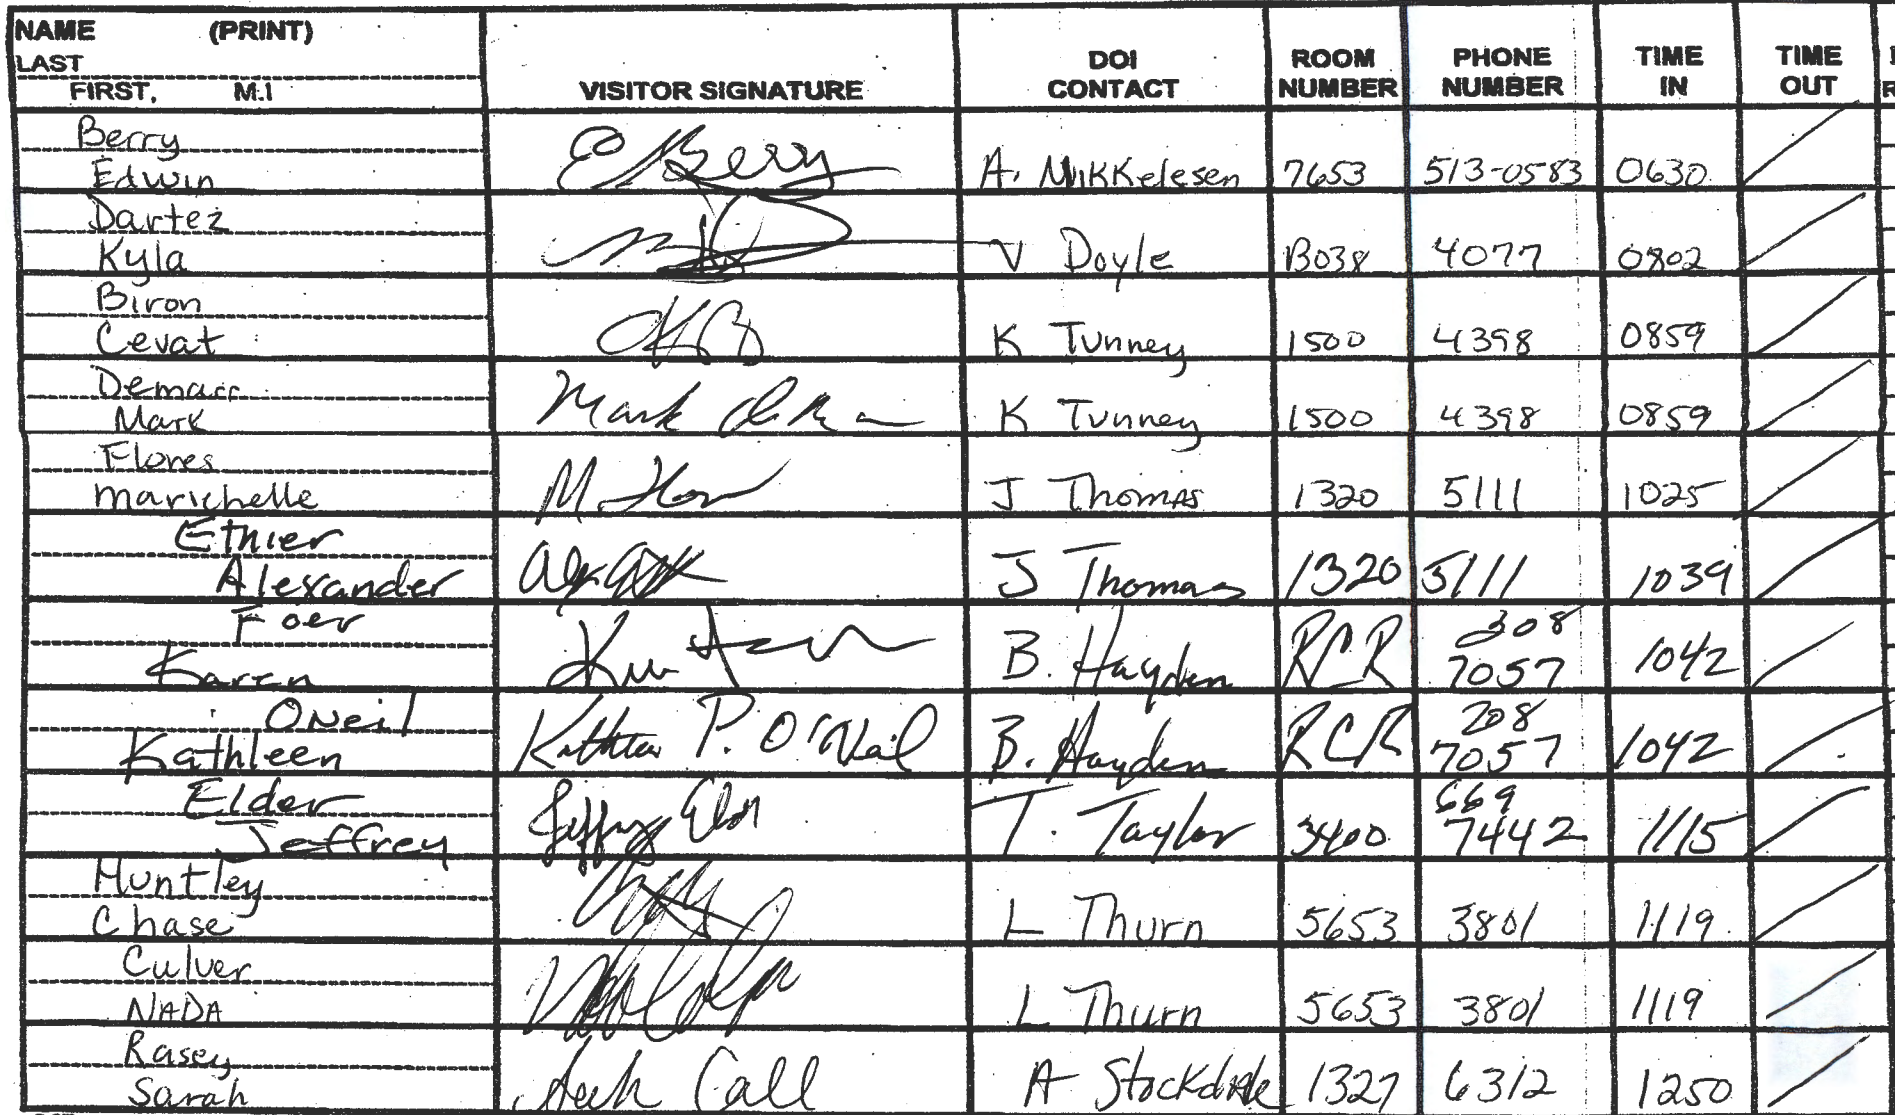 NAME (PRINT)
LAST
FIRST, M.I
VISITOR SIGNATURE
DOI CONTACT
ROOM NUMBER
PHONE NUMBER
TIME IN
TIME OUT
Berry
Edwin A. Mikkelesen 7653 513-0583 0630
Dartez
Kyla V Doyle B038 4077 0802
Biron
Cevat K Tunney 1500 4398 0859
Demarr
Mark K Tunney 1500 4398 0859
Flores
Marichelle J Thomas 1320 5111 1025
Ethier
Alexander J Thomas 1320 5111 1039
Foer
Karen B. Hayden RCR 7057 1042
ONeil 208
Kathleen Kathleen P. O'Neil B. Hayden RCR 7057 1042
Elder 669
Jeffrey T. Taylor 3400 7442 1115
Huntley
Chase L Thurn 5653 3801 1119
Culver
NADA L Thurn 5653 3801 1119
Rasey
Sarah A Stockdale 1327 6312 1250